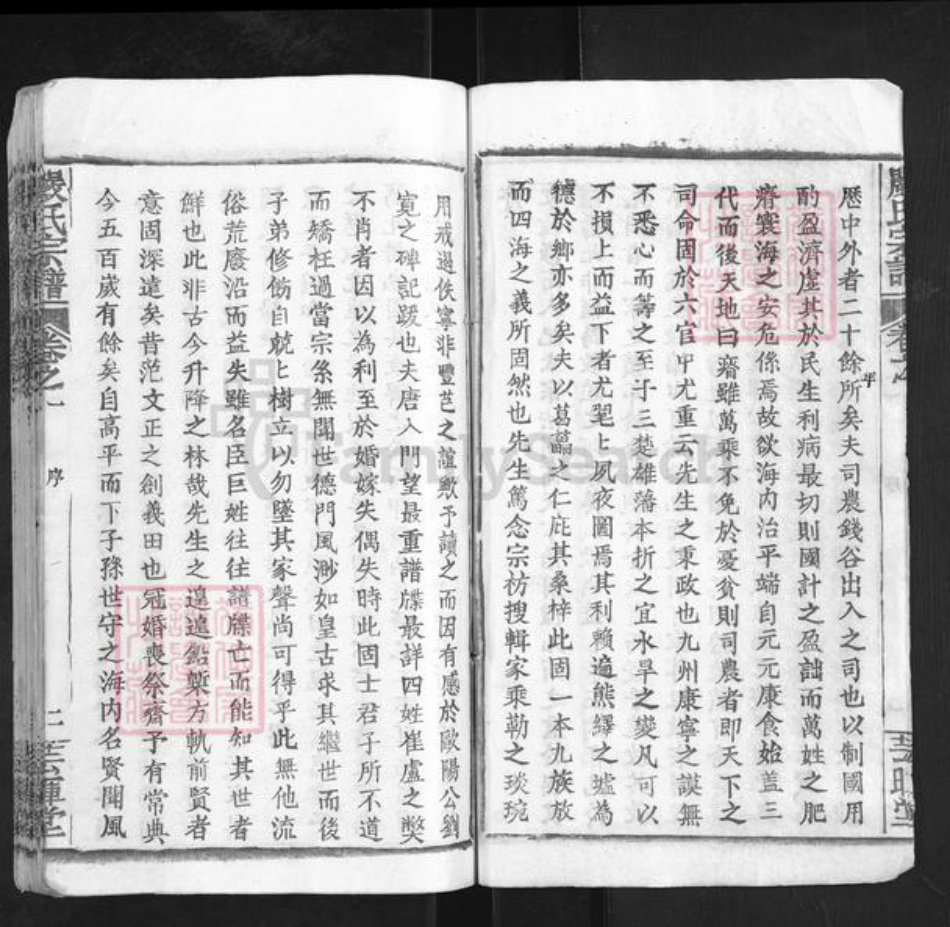 嚴氏宗譜
歷中外者二十餘所矣夫司農錢谷出入之司也以制國用
平
酌盈濟虛其於民生利病最切則國計之盈詘而萬姓之肥
瘠寰海之安危係焉故欲海內治平端自元元康食始蓋三
代而後天地曰瘠雖萬乘不免於憂貧則司農者即天下之
司命固於六官中尤重云先生之秉政也九州康寧之謨無
不悉心而籌之至于三楚雄藩本折之宜水旱之變凡可以
不損上而益下者尤翼上夙夜圖焉其利賴遍熊繹之墟為
德於鄉亦多矣夫以葛藟之仁庇其桑梓此固一本九族放
而四海之義所固然也先生篤念宗祊搜輯家乘勒之琰琬
用戒過佚寧非豐芑之誼歟予讀之而因有感於歐陽公劉
寬之碑記跋也夫唐人門望最重譜牒最詳四姓崔盧之獘
不肖者因以為利至於婚嫁失偶失時此固士君子所不道
而矯枉過當宗系無聞世德門風渺如皇古求其繼世而後
子弟修飭自兢上樹立以勿墜其家聲尚可得乎此無他流
俗荒廢沿而益失雖名臣巨姓往往譜牒亡而能知其世者
鮮也此非古今升降之林哉先生之遑遑鉛槧方軌前賢者
意固深遠矣昔范文正之創義田也冠婚喪祭齊予有常典
今五百歲有餘矣自高平而下子孫世守之海內名賢聞風
嚴氏宗譜
卷之一
序
二
FamilySearch